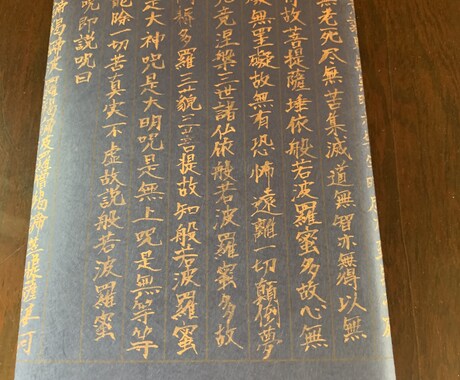 無老死尽無苦集滅道無智亦無得以無
得故菩提薩埵依般若波羅蜜多故心無
礙無罣礙故無有恐怖遠離一切顛倒夢
究竟涅槃三世諸仏依般若波羅蜜多故
耨多羅三藐三菩提故知般若波羅蜜
是大神呪是大明呪是無上呪是無等等
能除一切苦真実不虚故説般若波羅蜜
呪即説呪曰